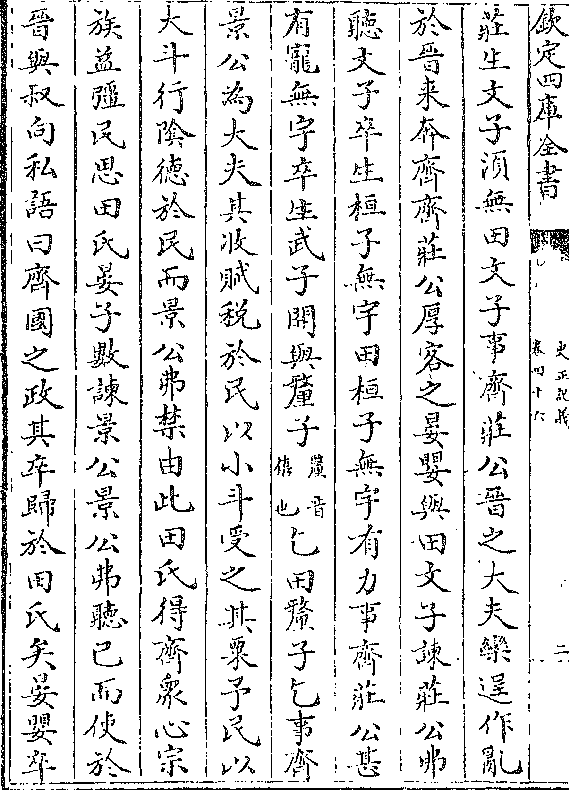 欽定四庫全書
史記正義
卷四十六
二
莊生文子須無田文子事齊莊公晉之大夫欒逞作亂
於晉来奔齊齊莊公厚客之晏嬰與田文子諫莊公弗
聽文子卒生桓子無宇田桓子無宇有力事齊莊公甚
有寵無宇卒生武子開與釐子
釐音
僖也
乞田釐子乞事齊
景公為大夫其收賦税於民以小斗受之其粟予民以
大斗行隂德於民而景公弗禁由此田氏得齊衆心宗
族益彊民思田氏晏子數諫景公景公弗聽已而使於
晉與叔向私語曰齊國之政其卒歸於田氏矣晏嬰卒